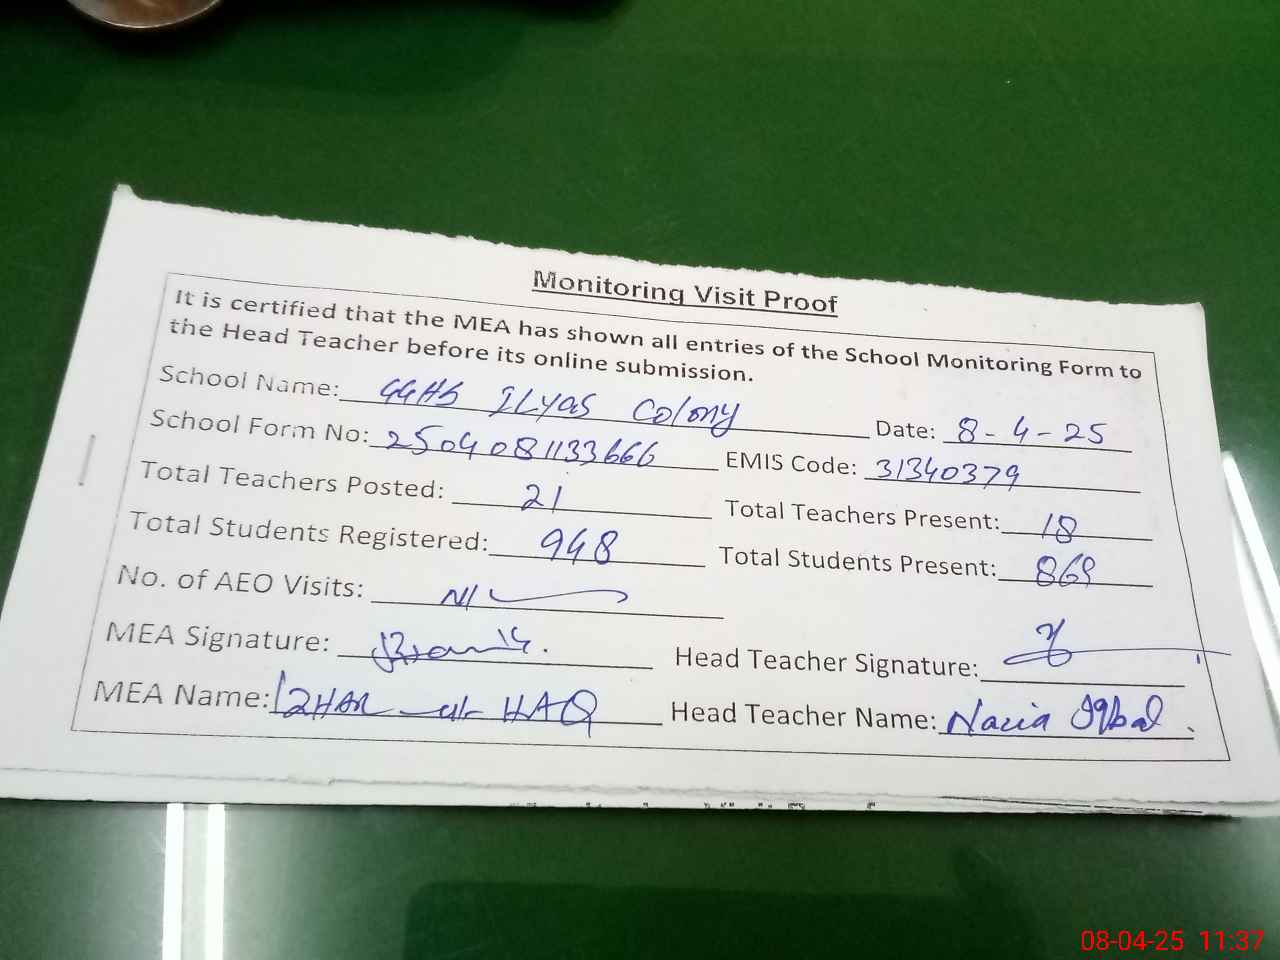 Monitoring Visit Proof
It is certified that the MEA has shown all entries of the School Monitoring Form to
the Head Teacher before its online submission.
School Name: GGHS ILYAS Colony Date: 8-4-25
School Form No: 2504081133666 EMIS Code: 31340379
Total Teachers Posted: 21 Total Teachers Present: 18
Total Students Registered: 948 Total Students Present: 869
No. of AEO Visits: NIL
MEA Signature: Head Teacher Signature:
MEA Name: IZHAR-ul-HAQ Head Teacher Name: Nazia Iqbal.
08-04-25 11:37